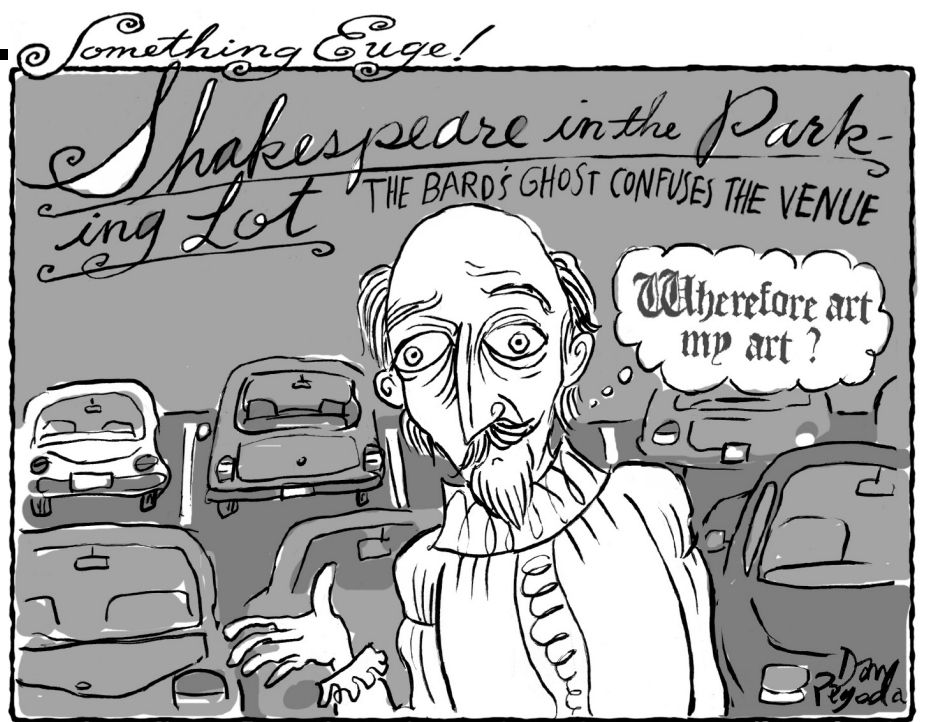 Something Euge!
Shakespeare in the Park-
ing Lot
THE BARD'S GHOST CONFUSES THE VENUE
Wherefore art
my art ?
Dan
Pegoda